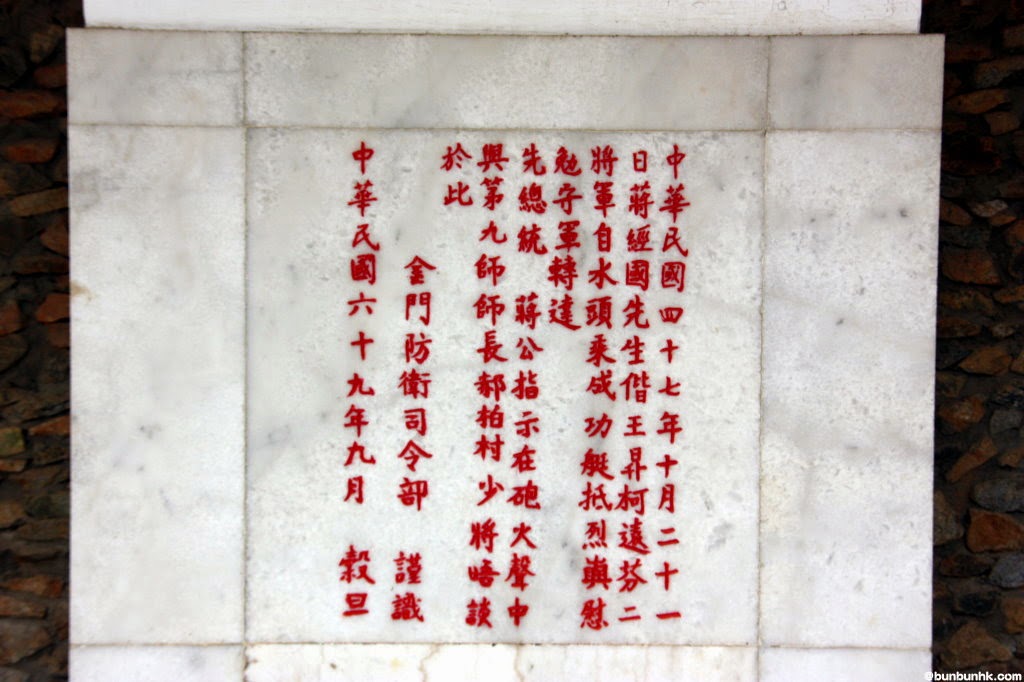 中華民國四十七年十月二十一
日蔣經國先生偕王昇柯遠芬二
將軍自水頭乘成功艇抵烈嶼慰
勉守軍轉達
先總統　蔣公指示在砲火聲中
與第九師師長郝柏村少將晤談
於此
金門防衛司令部　謹識
中華民國六十九年九月　穀旦
©bunbunhk.com